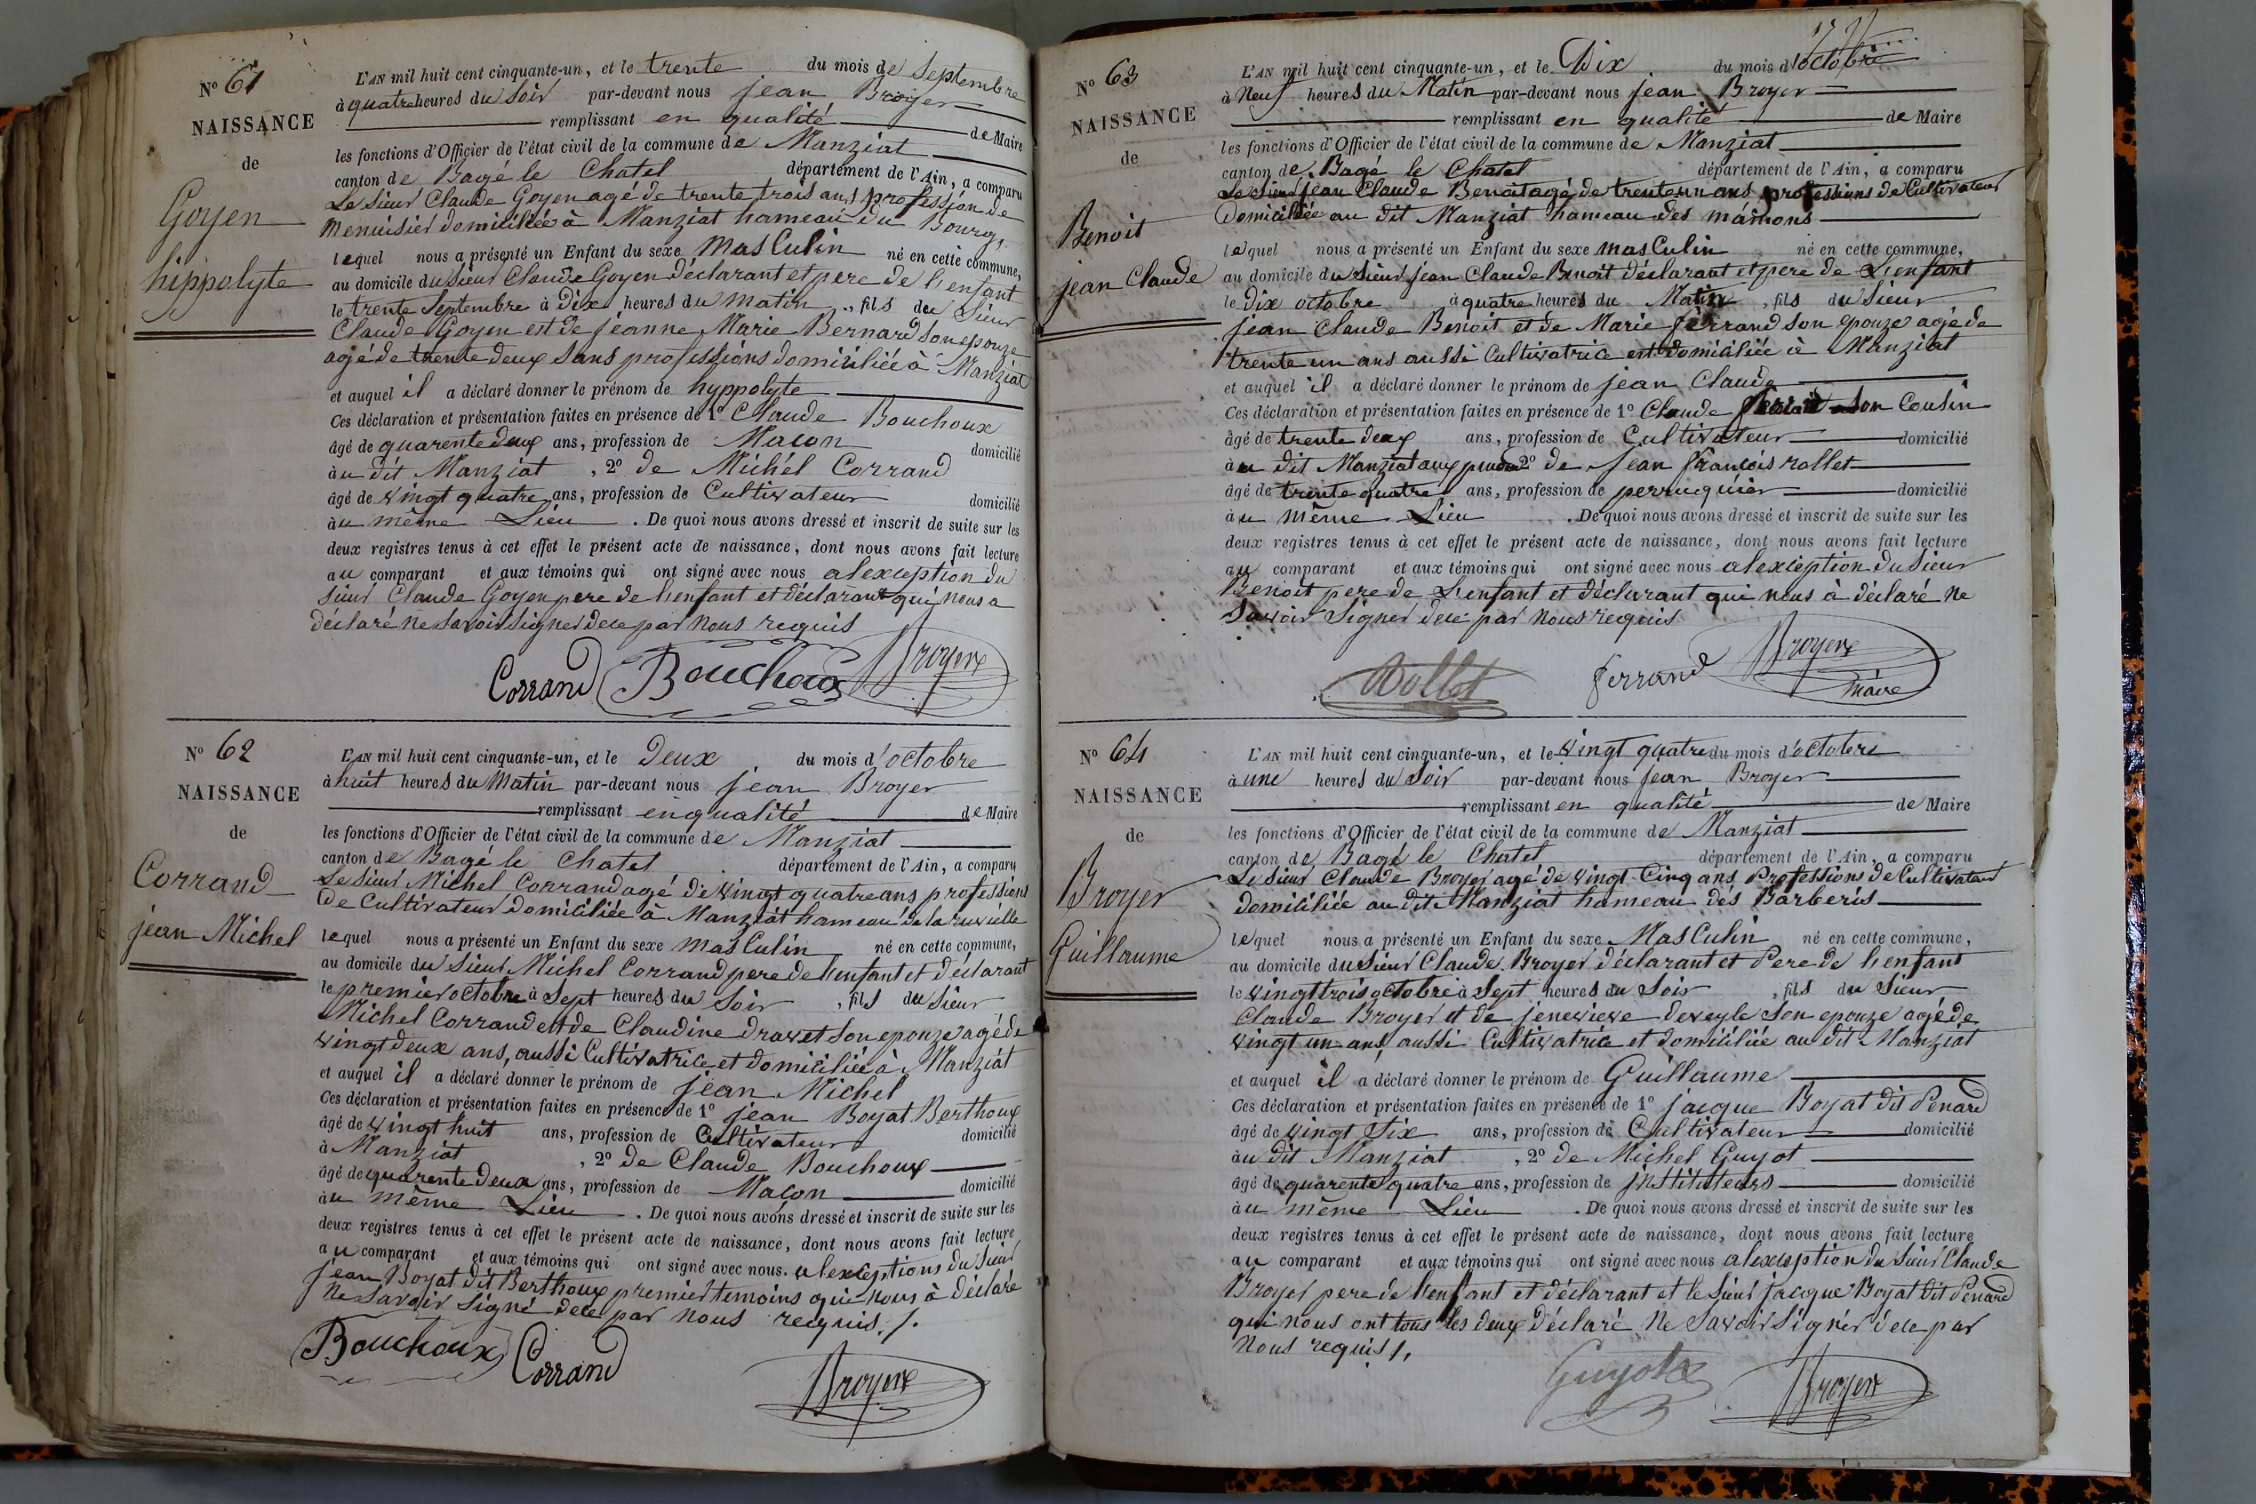 N° 61
NAISSANCE
de
Goyen
hippolyte
L'AN mil huit cent cinquante-un, et le trente du mois de Septembre
à quatre heures du Soir par-devant nous jean Broyer
remplissant en qualité de Maire
les fonctions d'Officier de l'état civil de la commune de Manziat
canton de Bagé le Chatel département de l'Ain, a comparu
Le Sieur Claude Goyen agé de trente trois ans, profession de
menuisier domiciliée à Manziat hameau du Bourg,
lequel nous a présenté un Enfant du sexe masCulin né en cette commune,
au domicile du Sieur Claude Goyen déclarant et pere de l'enfant
le trente Septembre à Dix heures du matin, fils du Sieur
Claude Goyen est de jeanne Marie Bernard son epouze
agé de trente deux sans professions domiciliée à Manziat
et auquel il a déclaré donner le prénom de hyppolyte
Ces déclaration et présentation faites en présence de 1° Claude Bouchoux
âgé de quarente deux ans, profession de Macon domicilié
àu dit Manziat, 2° de Michel Corrand
âgé de vingt quatre ans, profession de Cultivateur domicilié
àu même Lieu. De quoi nous avons dressé et inscrit de suite sur les
deux registres tenus à cet effet le présent acte de naissance, dont nous avons fait lecture
au comparant et aux témoins qui ont signé avec nous alexception du
Sieur Claude Goyen pere de l'enfant et déclarant qui nous a
déclaré ne Savoir Signer dece par nous requis
Corrand Bouchoux Broyer
N° 62
NAISSANCE
de
Corrand
jean Michel
L'AN mil huit cent cinquante-un, et le Deux du mois d'octobre
à huit heures du Matin par-devant nous jean Broyer
remplissant en qualité de Maire
les fonctions d'Officier de l'état civil de la commune de Manziat
canton de Bagé le Chatel département de l'Ain, a comparu
Le Sieur Michel Corrand agé de vingt quatre ans professions
De Cultivateur domiciliée à Manziat hameau de la
lequel nous a présenté un Enfant du sexe masCulin né en cette commune,
au domicile du Sieur Michel Corrand pere de l'enfant et déclarant
le premier octobre à Sept heures du Soir, fils du Sieur
Michel Corrand et de Claudine Dravet Son epouze agé de
vingt deux ans, aussi Cultivatrice et domiciliée à Manziat
et auquel il a déclaré donner le prénom de jean Michel
Ces déclaration et présentation faites en présence de 1° jean Boyat Berthoux
âgé de vingt huit ans, profession de Cultivateur domicilié
à Manziat, 2° de Claude Bouchoux
âgé de quarente deux ans, profession de Maçon domicilié
àu même Lieu. De quoi nous avons dressé et inscrit de suite sur les
deux registres tenus à cet effet le présent acte de naissance, dont nous avons fait lecture
au comparant et aux témoins qui ont signé avec nous. alexceptions du Sieur
jean Boyat dit Berthoux premier temoins qui nous à déclaré
ne Savoir Signé dece par nous requis./.
Bouchoux Corrand
Broyer
N° 63
NAISSANCE
de
Benoit
jean Claude
L'AN mil huit cent cinquante-un, et le Dix du mois d'octobre
à Neuf heures du Matin par-devant nous jean Broyer
remplissant en qualité de Maire
les fonctions d'Officier de l'état civil de la commune de Manziat
canton de Bagé le Chatel département de l'Ain, a comparu
Le Sieur jean Claude Benoit agé de trente un ans professions de Cultivateur
Domiciliée au dit Manziat hameau des
lequel nous a présenté un Enfant du sexe masCulin né en cette commune,
au domicile du Sieur jean Claude Benoit déclarant et pere de L'enfant
le Dix octobre à quatre heures du Matin, fils du Sieur
jean Claude Benoit et de Marie ferrand son epouze agé de
trente un ans aussi Cultivatrice est domiciliée à Manziat
et auquel il a déclaré donner le prénom de jean Claude
Ces déclaration et présentation faites en présence de 1° Claude son Cousin
âgé de trente deux ans, profession de Cultivateur domicilié
àu dit Manziat 2° de jean françois rollet
âgé de trente quatre ans, profession de perruquier domicilié
àu même Lieu. De quoi nous avons dressé et inscrit de suite sur les
deux registres tenus à cet effet le présent acte de naissance, dont nous avons fait lecture
au comparant et aux témoins qui ont signé avec nous alexception du Sieur
Benoit pere de L'enfant et déclarant qui nous à déclaré ne
Savoir Signer dece par nous requis
Rollet ferrand Broyer
maire
N° 64
NAISSANCE
de
Broyer
Guillaume
L'AN mil huit cent cinquante-un, et le vingt quatre du mois d'octobre
à une heures du Soir par-devant nous jean Broyer
remplissant en qualité de Maire
les fonctions d'Officier de l'état civil de la commune de Manziat
canton de Bagé le Chatel département de l'Ain, a comparu
Le Sieur Claude Broyer agé de vingt Cinq ans Professions de Cultivateur
domiciliée au dit Manziat hameau des Barberis
lequel nous a présenté un Enfant du sexe MasCulin né en cette commune,
au domicile du Sieur Claude Broyer déclarant et Pere de l'enfant
le vingt trois octobre à Sept heures du Soir, fils du Sieur
Claude Broyer et de jenevieve deveyle Son epouze agé de
vingt un ans, aussi Cultivatrice et domiciliée au dit Manziat
et auquel il a déclaré donner le prénom de Guillaume
Ces déclaration et présentation faites en présence de 1° jacque Boyat dit Penard
âgé de vingt Six ans, profession de Cultivateur domicilié
àu dit Manziat, 2° de Michel Guyot
âgé de quarente quatre ans, profession de jnstituteurs domicilié
àu même Lieu. De quoi nous avons dressé et inscrit de suite sur les
deux registres tenus à cet effet le présent acte de naissance, dont nous avons fait lecture
au comparant et aux témoins qui ont signé avec nous alexception du Sieur Claude
Broyer pere de l'enfant et déclarant et le Sieur jacque Boyat dit Penard
qui nous ont tous les deux déclaré ne Savoir Signér dece par
nous requis /.
Guyot Broyer